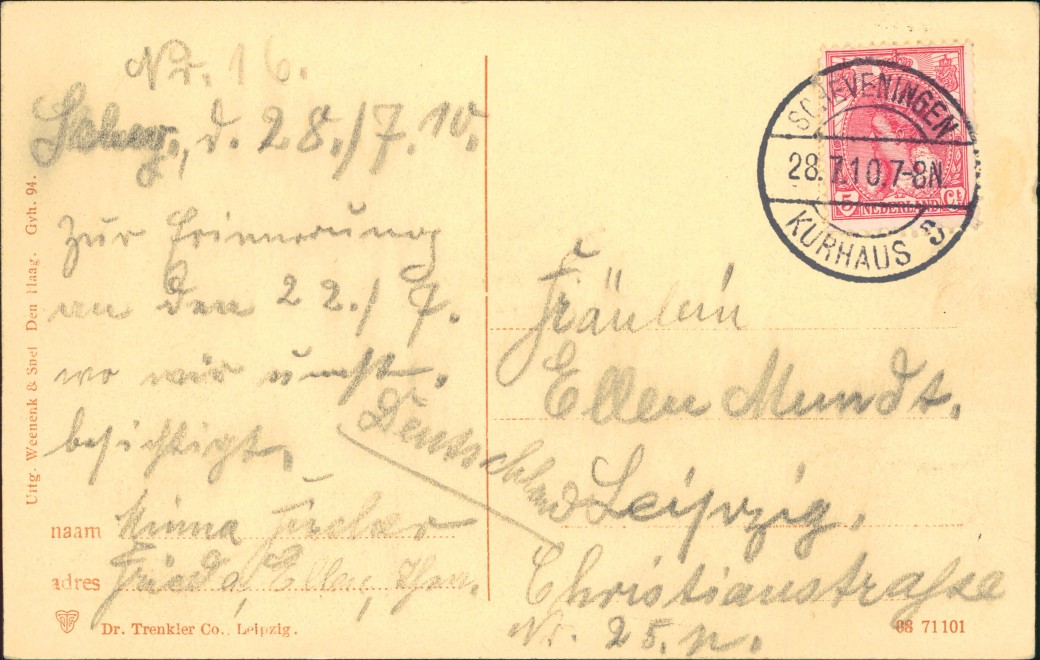 Nr. 16.
Schev., d. 28./7. 10.
zur Erinnerung
an den 22./7.
wo wir
besichtigt.
naam Minna
adres Frieda, Ellen,
Dr. Trenkler Co., Leipzig.
Uitg. Weenenk & Snel Den Haag. Gvh. 94.
SCHEVENINGEN
28.7.10.7-8N
KURHAUS
5 NEDERLAND Ct
Fräulein
Ellen Mundt.
Deutschland
Leipzig,
Christianstraße
Nr. 25. p.
08 71101